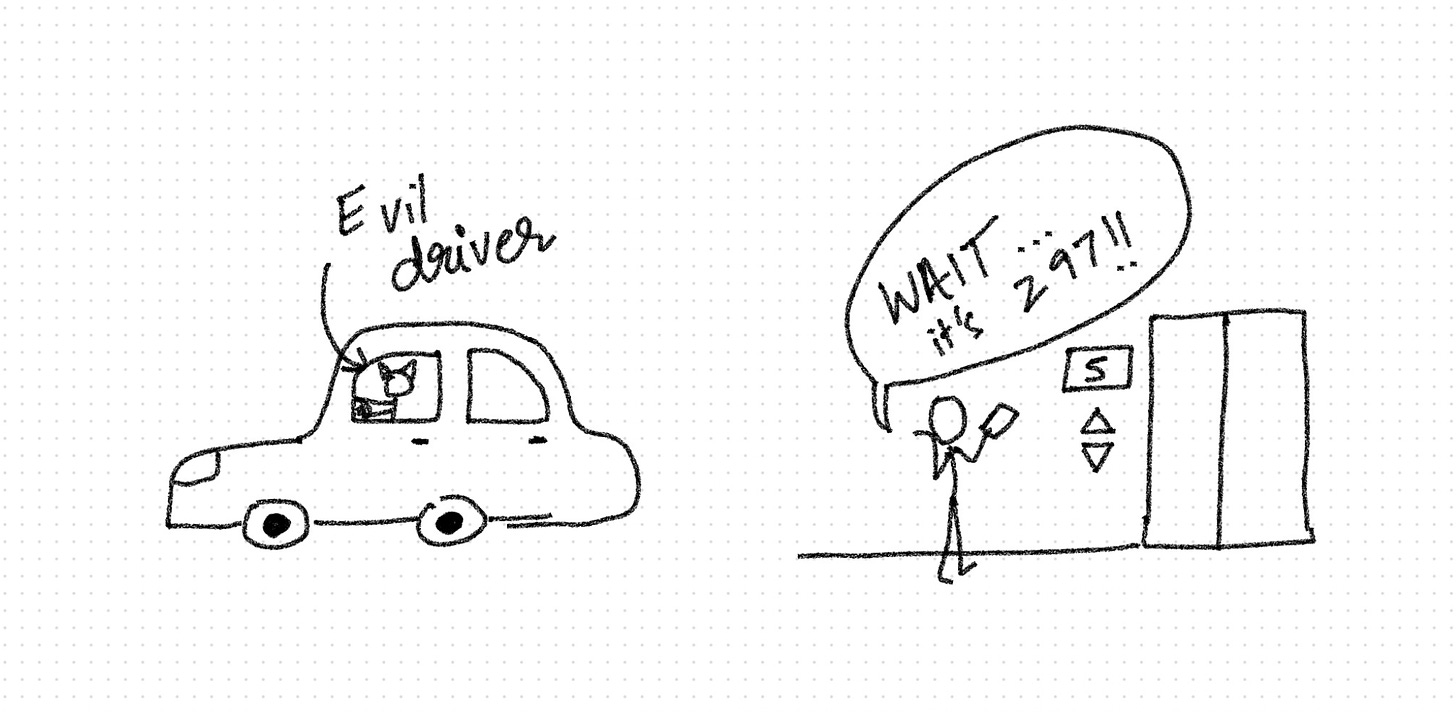 Evil
driver
WAIT ...
it's 297!!
5